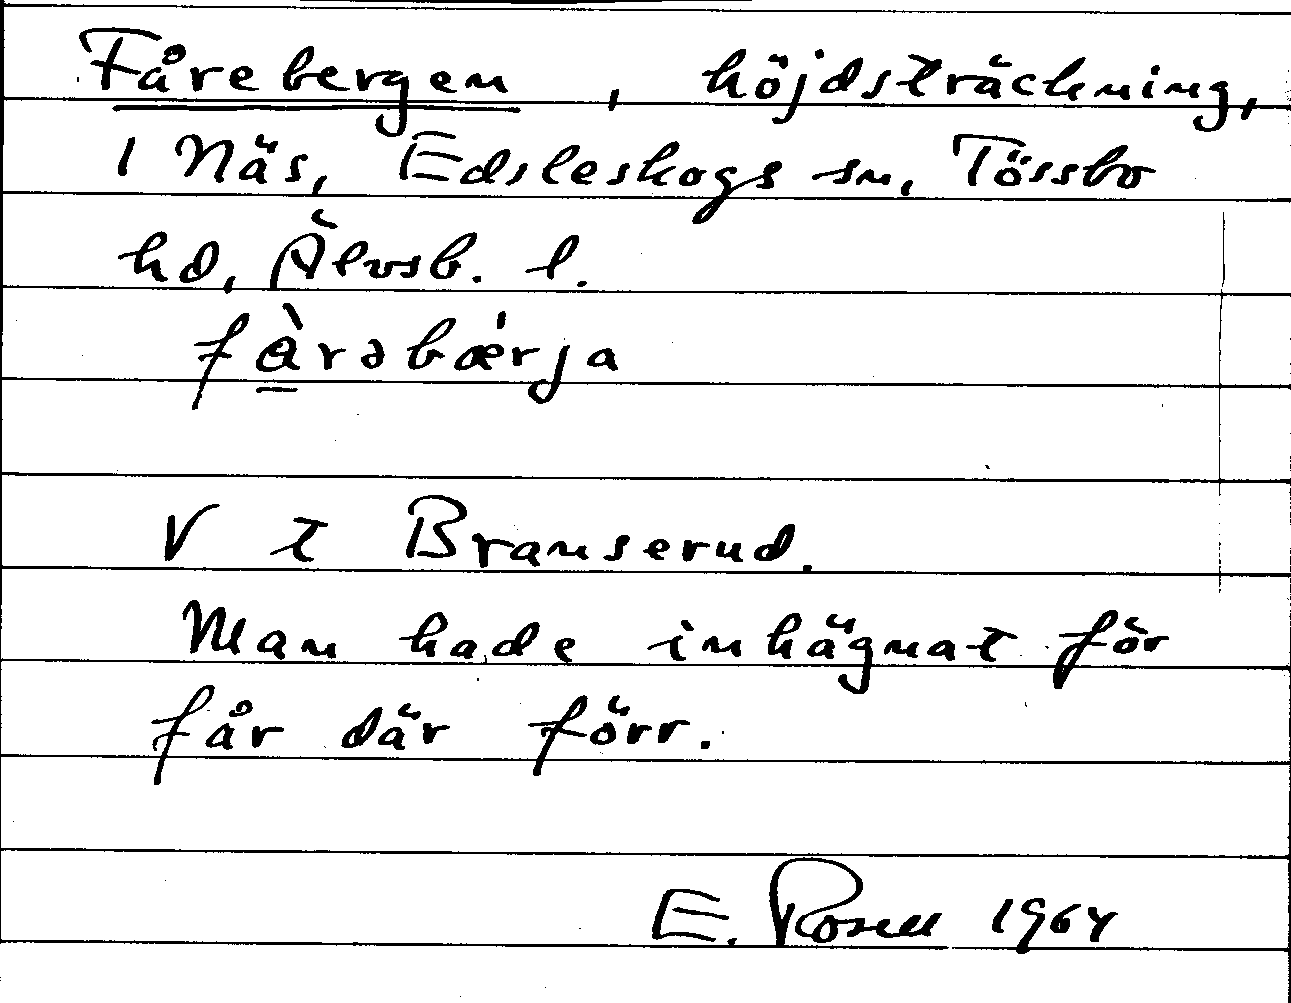 Fårebergen, höjdsträckning,
I Näs, Edsleskogs sn, Tössbo
hd, Älvsb. l.
fà̱rəbæ̍rja
V t Bramserud.
Man hade inhägnat för
får där förr.
E. Rosell 1964